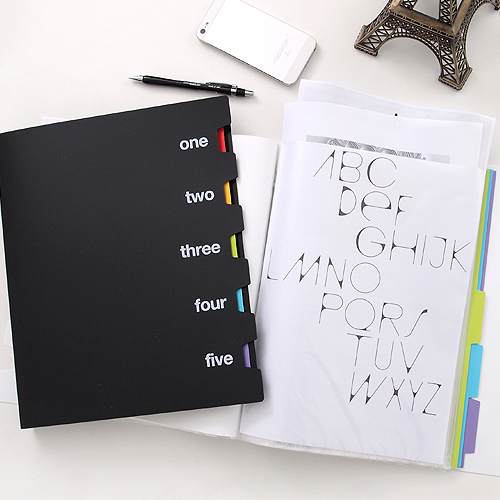 one
two
three
four
five
ABC
DeF
GHIJK
LMNO
PQRS
TUV
WXYZ